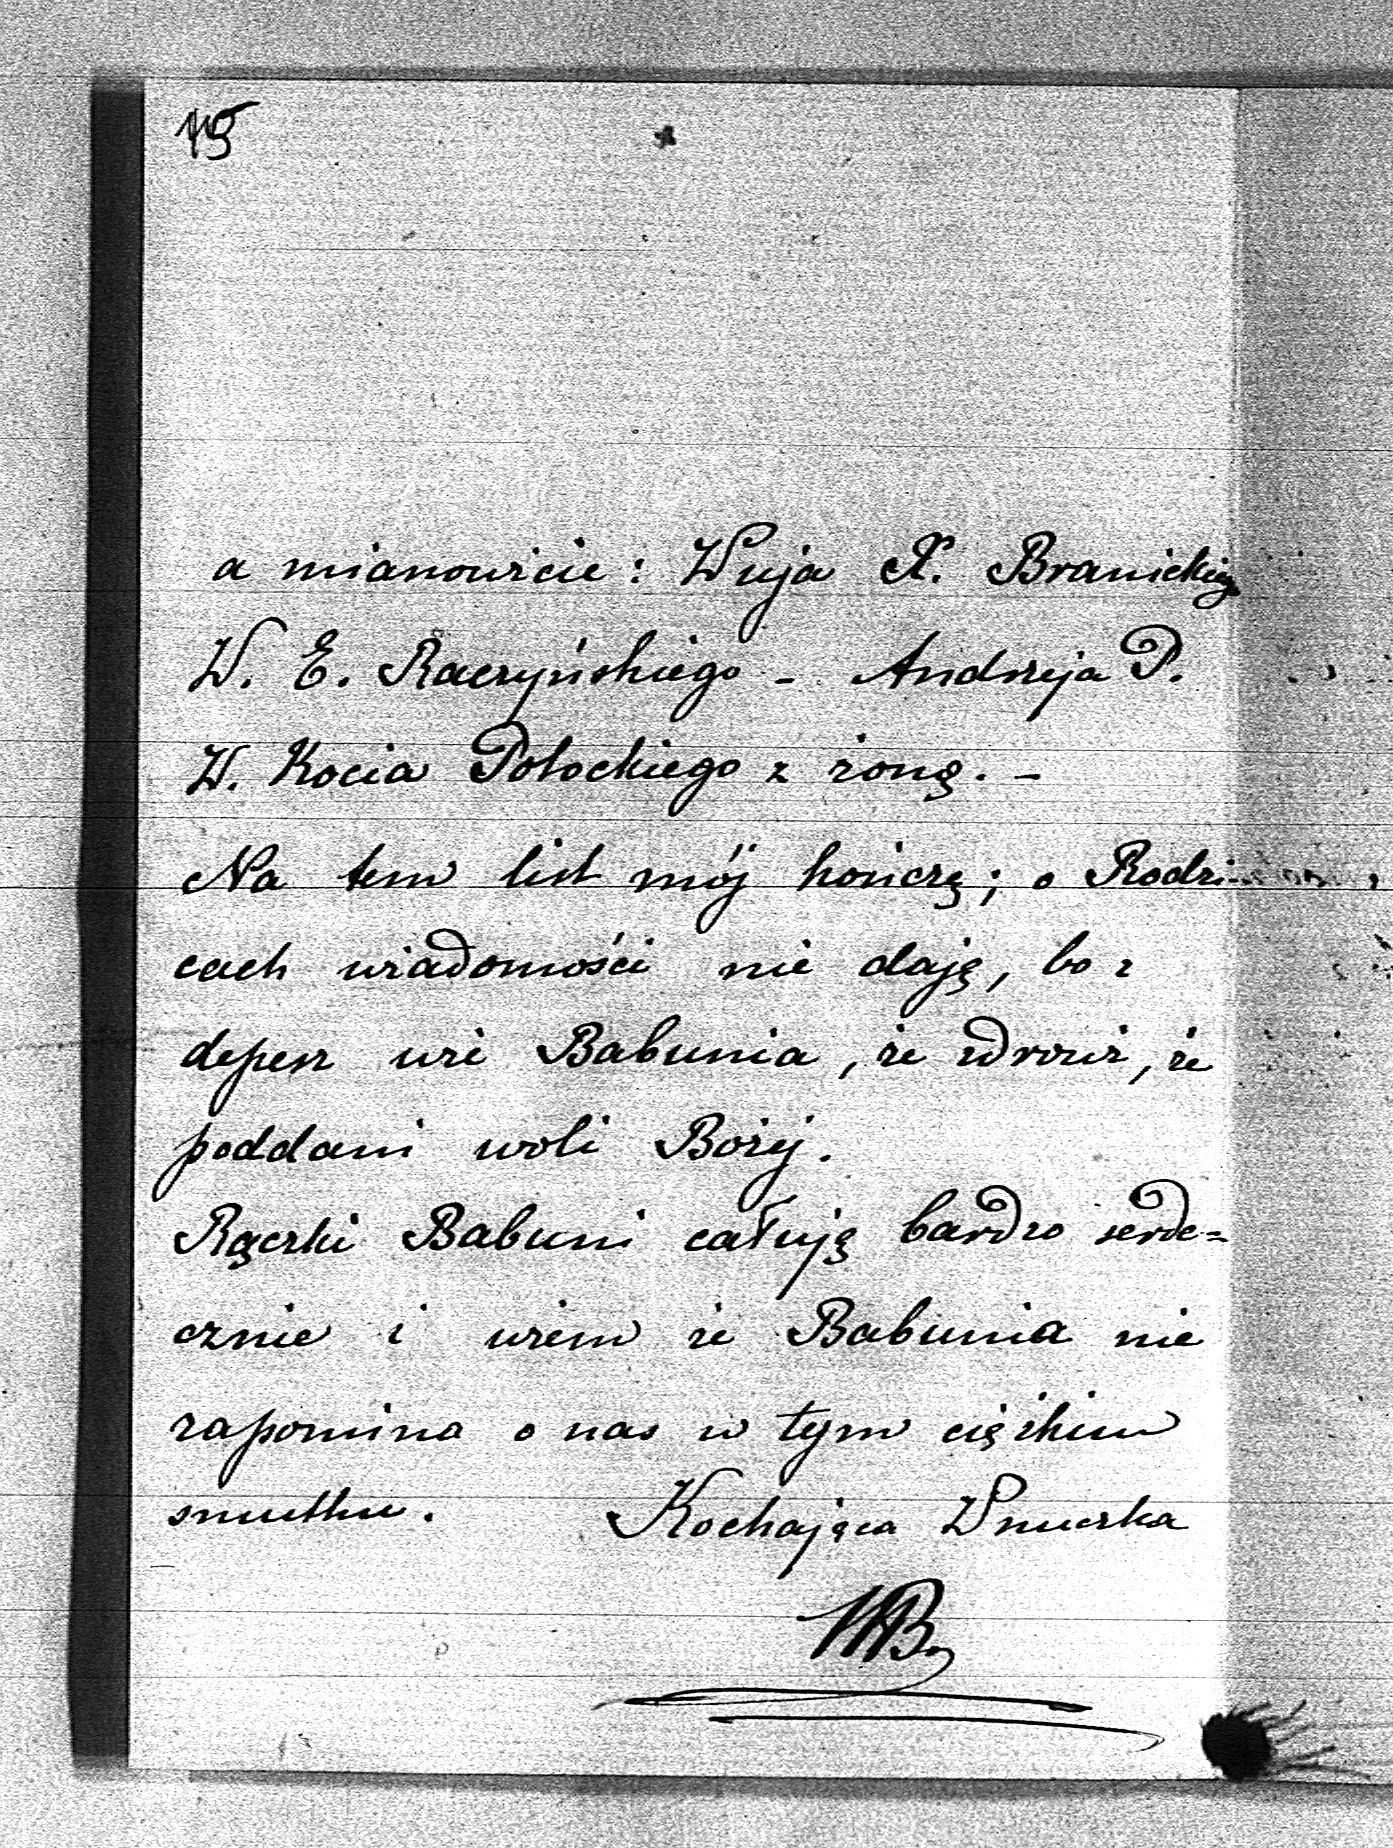 115
a mianowicie: Wuja X. Branickieg
W. E. Raczyńskiego - Andrzeja P.
W. Kocia Potockiego z żoną. -
Na tem list mój kończę; o Rodzi-
cach wiadomości nie daję, bo z
depesz wie Babunia, że zdrowi, że
poddani woli Bożej.
Rączki Babuni całuję bardzo serde=
cznie i wiem że Babunia nie
zapomina o nas w tym ciężkim
smutku. Kochająca Wnuczka